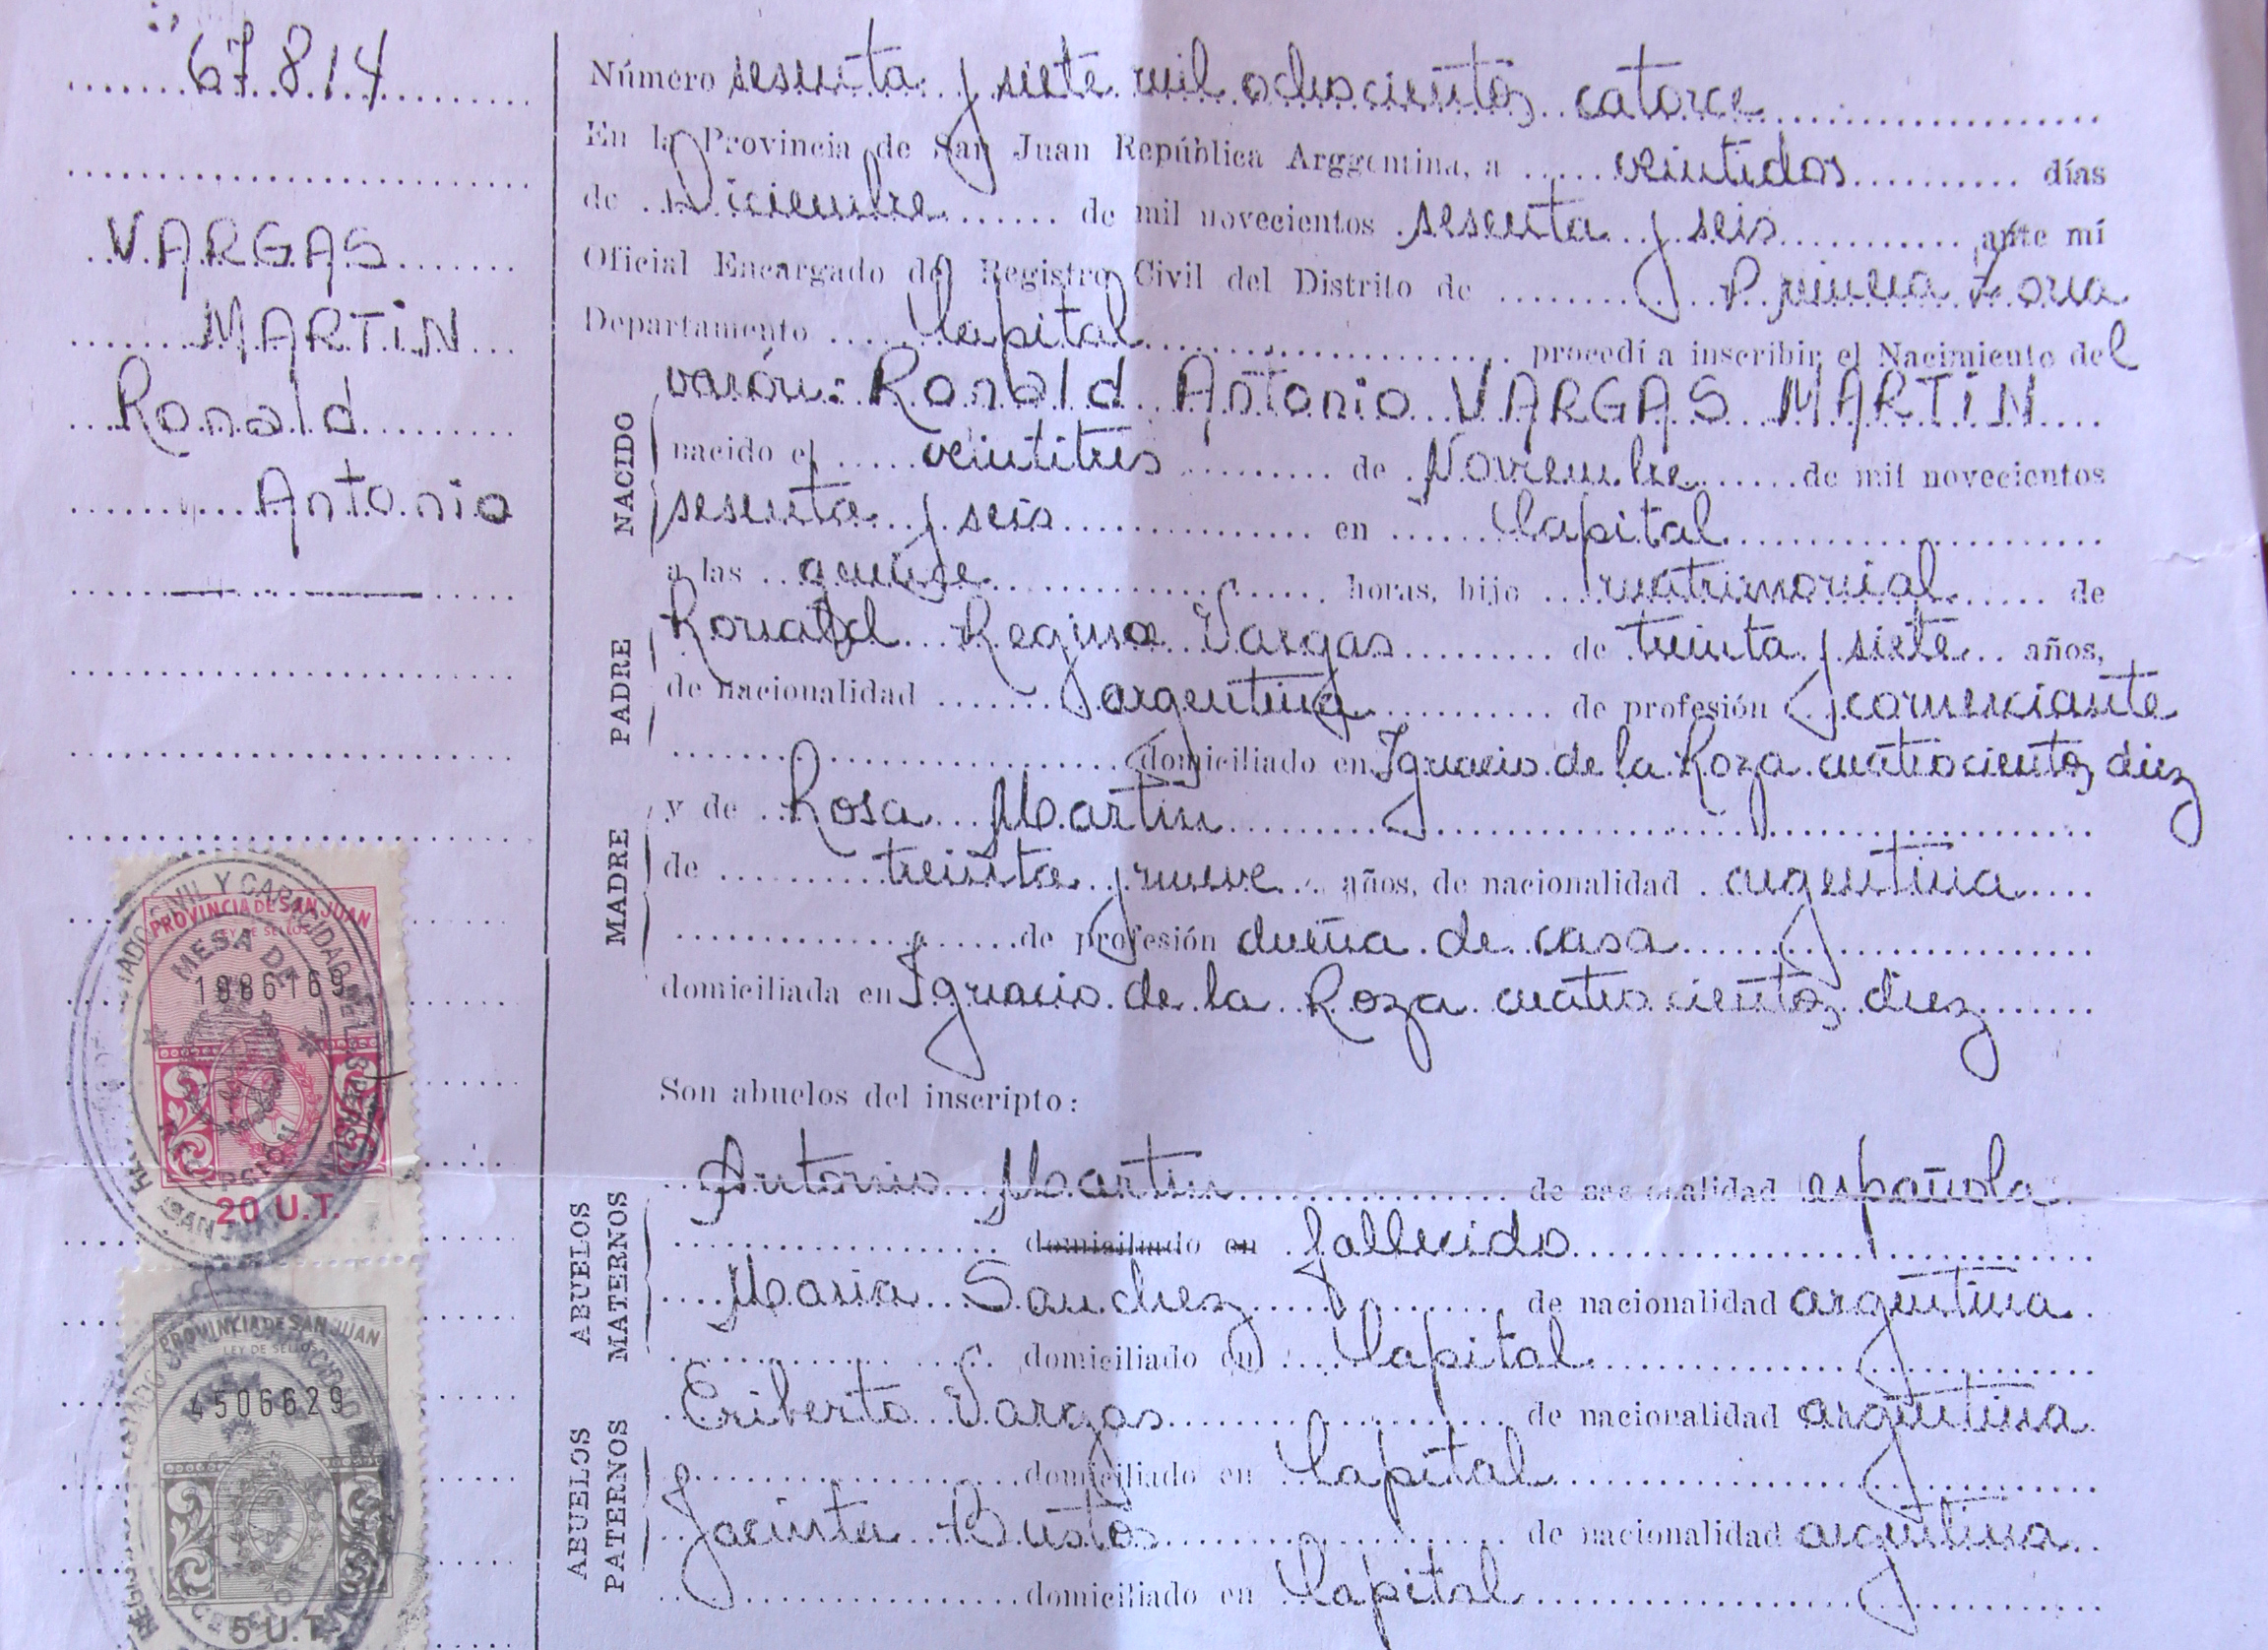 67.814
VARGAS
MARTIN
Ronald
Antonio
Número sesenta y siete mil ochocientos catorce
En la Provincia de San Juan República Arggentina, a veintidos días
de Diciembre de mil novecientos sesenta y seis ante mí
Oficial Encargado del Registro Civil del Distrito de Primera Zona
Departamento Capital procedí a inscribir el Nacimiento del
varón: Ronald Antonio VARGAS MARTIN
NACIDO
nacido el veintitres de Noviembre de mil novecientos
sesenta y seis en Capital
a las quince horas, hijo matrimonial de
PADRE
Ronald Regino Vargas de treinta y siete años,
de nacionalidad argentina de profesión comerciante
domiciliado en Ignacio de la Roza cuatrocientos diez
MADRE
y de Rosa Martin
de treinta y nueve años, de nacionalidad argentina
de profesión dueña de casa
domiciliada en Ignacio de la Roza cuatrocientos diez
Son abuelos del inscripto:
ABUELOS
MATERNOS
Antonio Martin de nacionalidad española
domiciliado en fallecido
Maria Sanchez de nacionalidad argentina
domiciliado en Capital
ABUELOS
PATERNOS
Eriberto Vargas de nacionalidad argentina
domiciliado en Capital
Jacinta Bustos de nacionalidad argentina
domiciliado en Capital
PROVINCIA DE SAN JUAN
LEY DE SELLOS
MESA DE
1086169
20 U.T.
PROVINCIA DE SAN JUAN
LEY DE SELLOS
4506629
5 U.T.